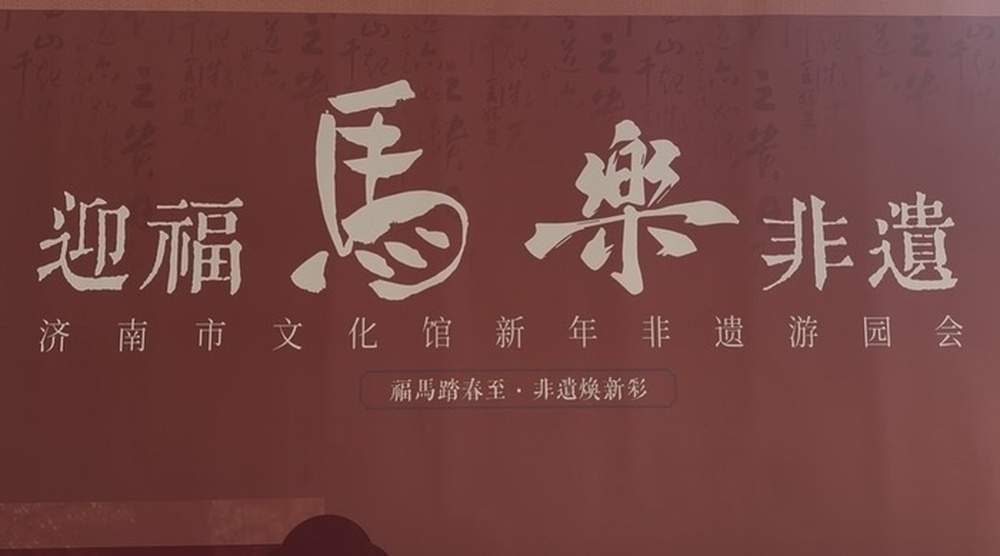 迎福馬樂非遺
济南市文化馆新年非遗游园会
福馬踏春至·非遺焕新彩